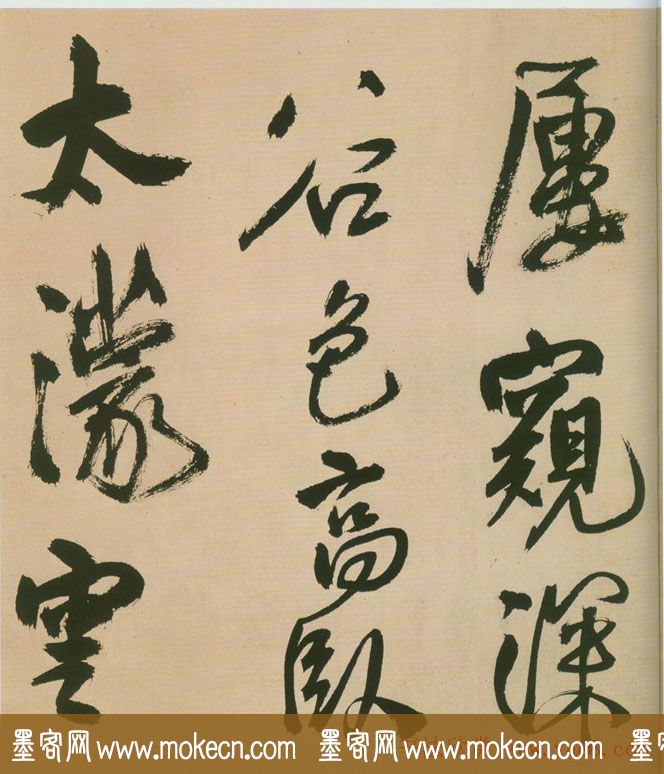 屢窺深
谷色高臥
太濛雲
墨客网 www.mokecn.com 墨客网 www.mokecn.com 墨客